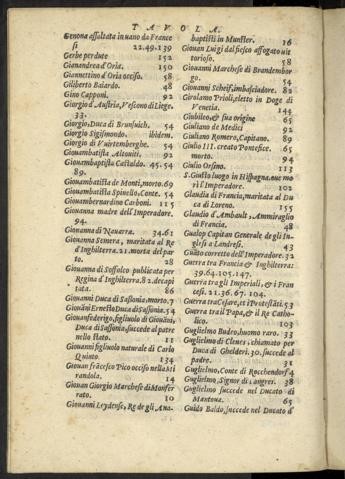 TAVOLA.
Genova assaltata in vano da France
si 22.49.139
Gerbe perdute 152
Gianandrea d'Oria. 150
Giannettino d'Oria occiso. 58
Giliberto Baiardo. 48
Gino Capponi. 92
Giorgio d'Austria, Vescovo di Liege.
33.
Giorgio, Duca di Brunsuich. 54
Giorgio Sigismondo. ibidem.
Giorgio di Vuirtemberghe. 54
Giouambatista Altouiti. 92
Giouambatista Castaldo. 45.54
89.
Giouambatista de Monti, morto. 69
Giouambatista Spinello, Conte. 54
Giouambernardino Carboni. 115
Giouanna madre dell'Imperadore.
94.
Giouanna di Nauarra. 34.61
Giouanna Semera, maritata al Re
d'Inghilterra. 21. morta del par
to. 28
Giouanna di Soffolco publicata per
Regina d'Inghilterra. 82. decapi
tata. 86
Giouanni Duca di Sassonia, morto. 7
Giouāni Ernesto Duca di Sassonia. 54
Giouanfederigo, figliuolo di Giouāni,
Duca di Sassonia, succede al patre
nello stato. 11
Giouanni figliuolo naturale di Carlo
Quinto. 134
Giouan frācesco Pico occiso nella Mi
randola. 14
Giouan Giorgio Marchese di Monfer
rato. 10
Giouanni Leydense, Re de gli Ana-
baptisti in Munster. 16
Giouan Luigi dal fiesco affogato vit
torioso. 58
Giouanni Marchese di Brandembor
go. 54
Giouanni Scheif, imbasciadore. 82
Girolamo Prioli, eletto in Doge di
Venetia. 144
Giubileo, & sua origine 65
Giuliano de Medici 92
Giuliano Romero, Capitano. 89
Giulio III. creato Pontefice. 65
morto. 94
Giulio Orsino. 113
S. Giusto luogo in Hispagna, oue mo
rì l'Imperadore. 102
Glaudia di Francia, maritata al Du
ca di Loreno. 155
Glaudio d'Ambault, Ammiraglio
di Francia. 48
Gualop Capitan Generale de gli In-
glesi a Landresi. 43
Guasto corretto dell'Imperadore. 32
Guerra tra Francia & Inghilterra:
39.64.105.147.
Guerra tra gli Imperiali, & i Fran
cesi. 21.36.67.104.
Guerra tra Cesare, et i Protestāti. 53
Guerra tra il Papa, & il Re Catho-
lico. 103
Guglielmo Budeo, huomo raro. 33
Guglielmo di Cleues, chiamato per
Duca di Ghelderi. 30. succede al
padre. 31
Guglielmo, Conte di Rocchendorf 4
Guglielmo, Signor di Langrei. 38
Guglielmo succede nel Ducato di
Mantoua. 65
Guido Baldo, succede nel Ducato d'